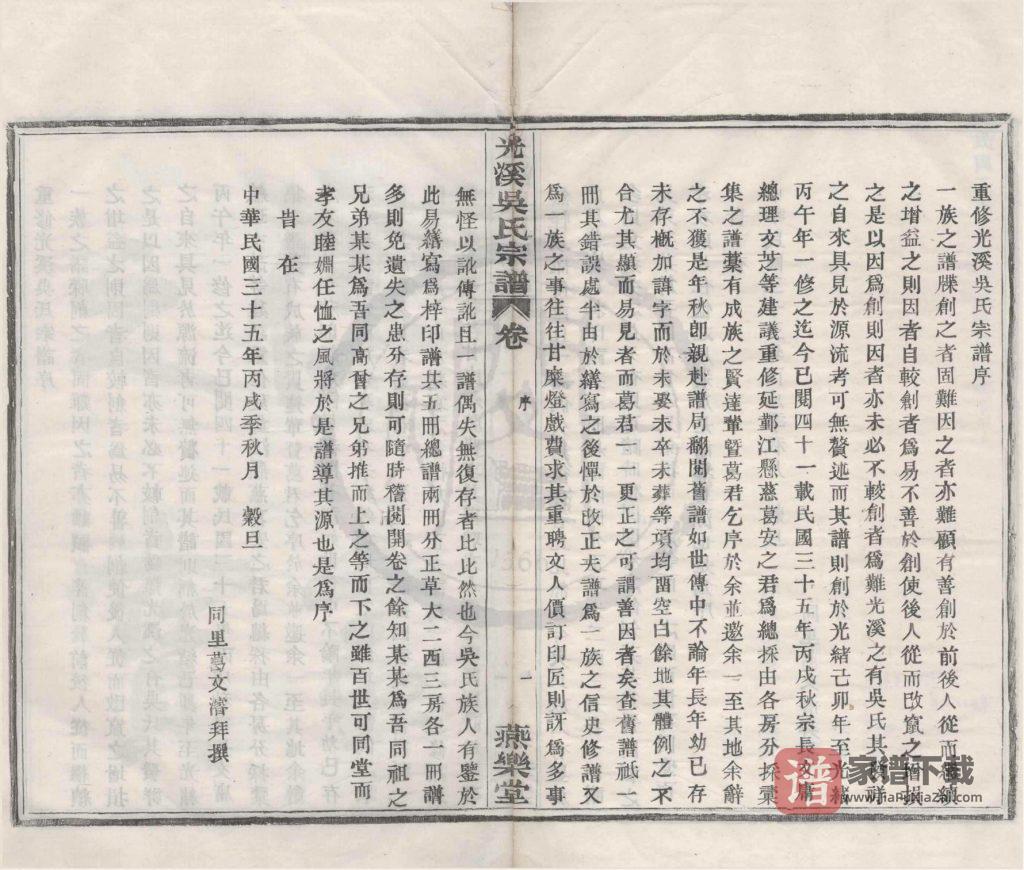 重修光溪吳氏宗譜序
一族之譜牒創之者固難因之者亦難顧有善創於前後人從而纘續
之增益之則因者自較創者爲易不善於創使後人從而改竄之增損
之是以因爲創則因者亦未必不較創者爲難光溪之有吳氏其發祥
之自來具見於源流考可無贅述而其譜則創於光緒己卯年至光緒
丙午年一修之迄今已閱四十一載民國三十五年丙戌秋宗長文庸
總理文芝等建議重修延鄞江懸慈葛安之君爲總採由各房分採稾
集之譜藳有成族之賢達輩暨葛君乞序於余並邀余一至其地余辭
之不獲是年秋卽親赴譜局翻閱舊譜如世傳中不論年長年幼已存
未存槪加諱字而於未娶未卒未葬等項均畱空白餘地其體例之不
合尤其顯而易見者而葛君一更正之可謂善因者矣查舊譜祇一
冊其錯誤處半由於繕寫之後憚於改正夫譜爲一族之信史修譜又
爲一族之事往往甘糜燈戲費求其重聘文人價訂印匠則訝爲多事
光溪吳氏宗譜 卷 序 一 燕樂堂
無怪以訛傳訛且一譜偶失無復存者比比然也今吳氏族人有鑒於
此易繕寫爲梓印譜共五冊總譜兩冊分正草大二西三房各一冊譜
多則免遺失之患分存則可隨時稽閱開卷之餘知某某爲吾同祖之
兄弟某某爲吾同高曾之兄弟推而上之等而下之雖百世可同堂而
孝友睦婣任恤之風將於是譜導其源也是爲序
旹在
中華民國三十五年丙戌季秋月 穀旦
同里葛文濳拜撰
譜
家谱下载
www.jiapuxiazai.com